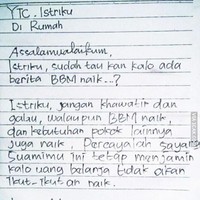 YTC. Istriku
Di Rumah
Assalamualaikum,
Istriku, sudah tau kan kalo ada
berita BBM naik..?
Istriku, jangan khawatir dan
galau, walaupun BBM naik,
dan kebutuhan pokok lainnya
juga naik, Percayalah sayang
Suamimu ini tetap menjamin
kalo uang belanja tidak akan
ikut-ikutan naik.